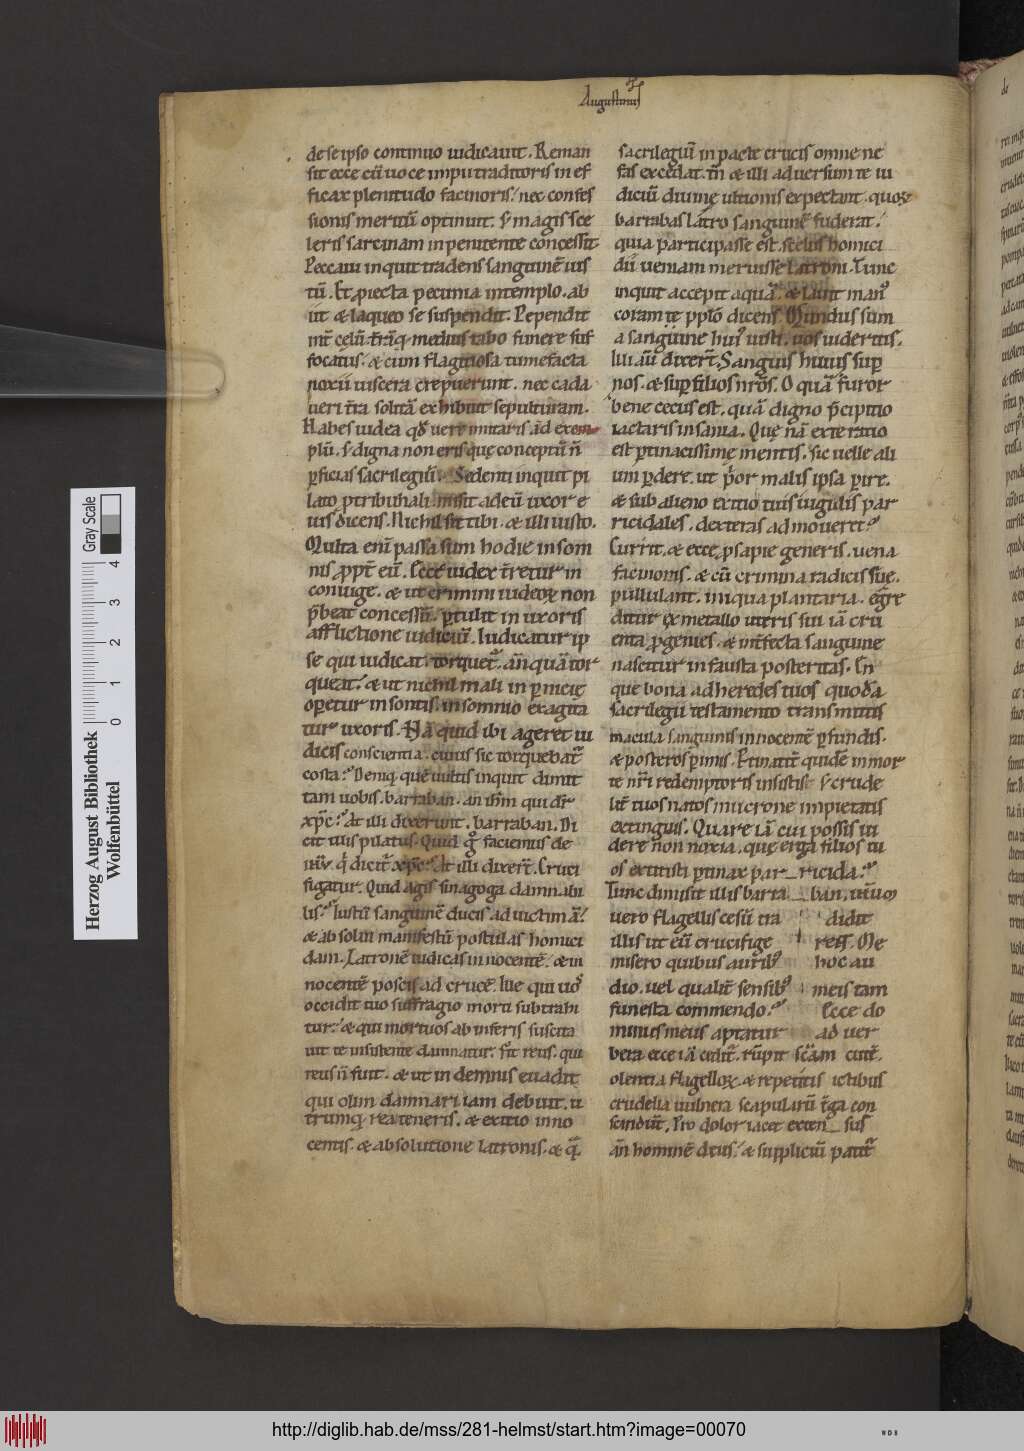 Augustinus
de se ipso continuo iudicauit. Reman
sit ecce eũ uoce impu traditoris in ef
ficax plenitudo facinoris. nec confes
sionis meritũ optinuit. ꝫ magis sce
leris sarcinam inpenitente concessit.
Peccaui inquit tradens sanguinẽ ius
tũ. Et ꝓiecta pecunia in templo. ab
iit & laqueo se suspendit. Pependit
int̃ celũ tr̃aq; medius tabo funere suf
focatus. & cum flagitiosa tumefacta
noxii uiscera crepuerunt. nec cada
ueri tr̃a solitã exhibuit sepulturam.
Habes iudea qđ uere imitaris. ad exem
plũ. ꝫ digna non eris quę conceptũ ñ
ꝑficias sacrilegiũ. Sedenti inquit pi
lato ꝓ tribunali. misit ad eũ uxor e
ius dicens. Nichil sit tibi. & illi iusto.
Multa eni passa sum hodie in som
nis ꝓpt̃ eũ. Ecce iudex t̃retur in
coniuge. & ut crimini iudeoꝝ non
p̃beat concessũ. ꝑtulit in uxoris
afflictione iudiciũ. Iudicatur ip
se qui iudicat. torquet̃. anquã tor
queat. & ut nichil mali in ꝑnicię
oꝑetur insontis. in somnio exagita
tur uxoris. Nã quid ibi ageret iu
dicis conscientia. cuius sic torquebat̃
costa? Deniq; quẽ uultis inquit dimit
tam uobis. barraban. an ihm qui dr̃
xp̃c? At illi dixerunt. barraban. Di
cit illis pilatus. Quid g̊ faciemus de
ihu. q̇ dicit̃ xp̃c? At illi dixer̃t. Cruci
figatur. Quid agis sinagoga damnabi
lis? Iustũ sanguinẽ ducis ad uictimã?
& absolui manifestũ postulas homici
dam. Latronẽ iudicas innocentẽ. & in
nocentẽ poscis ad crucẽ. Iue qui uos
occidit tuo suffragio morti subtrahi
tur. & qui mortuos ab inferis suscita
uit te insistente damnatur. fit reus. qui
reus ñ fuit. & ut indemnis euadit
qui olim damnari iam debuit. u
trumq; rea teneris. & exitio inno
centis. & absolutione latronis. & q̃
sacrilegiũ in pacte crucis omne ne
fas excedat. tñ & illi aduersum te iu
diciũ diuinę ultionis expectant. quoꝝ
barrabas latro sanguinẽ fuderat.
quia participasse est scelus homici
dii ueniam meruisse latroni. Tunc
inquit accepit aquã. & lauit man9
coram te pplo dicens. Mundus sum
a sanguine hui9 iusti. uos uideritis.
Illi aũ dixer̃t. Sanguis huius suꝑ
nos. & suꝑ filios nros. O quã furor
bene cecus est. quã digno p̃cipitio
iactaris insania. Quę nã exte ratio
est ꝑtinacissimę mentis. sic uelle ali
um ꝑdere. ut p̃or malis ipsa ꝑire.
& sub alieno exitio tuis iugulis par
ricidales. dexteras admoueret?
Currit. & ecce ꝓsapie generis. uena
facinoris. & cũ crimina radicis suę.
pullulant. iniqua plantaria. eg̃re
ditur ex metallo uteris sui iã cru
enta ꝓgenies. & int̃fecta sanguine
nascitur infausta posteritas. En
que bona ad heredes tuos quoda
sacrilegii testamento transmittis
macula sanguinis innocentẽ ꝑfundis.
& posteros ꝑimis. Et inatit̃ quidẽ in mor
te nr̃i redemptoris insistis. ꝫ crude
lit̃ tuos natos mucrone impietatis
extinguis. Quare iã cui possis ui
dere non noxia. quę erga filios tu
os extitisti ꝑtinax par ricida?
Tunc dimisit illis barra ban. ihuum
uero flagellis cesũ tra didit
illis ut eũ crucifige rent. Me
misero quibus aurib9 hoc au
dio. uel qualit̃ sensib9 meis tam
funesta commendo? Ecce do
minus meus aptatur ad uer
bera ecce iã cedit̃. rũpit sc̃am cutẽ.
olentia flagelloꝝ. & repetitis ictibus
crudelia uulnera scapularũ t̃ga con
scindũt. Pro dolor iacet exten sus
añ hominẽ deus. & suppliciũ patit̃
Gray Scale
0 1 2 3 4
Herzog August Bibliothek
Wolfenbüttel
http://diglib.hab.de/mss/281-helmst/start.htm?image=00070